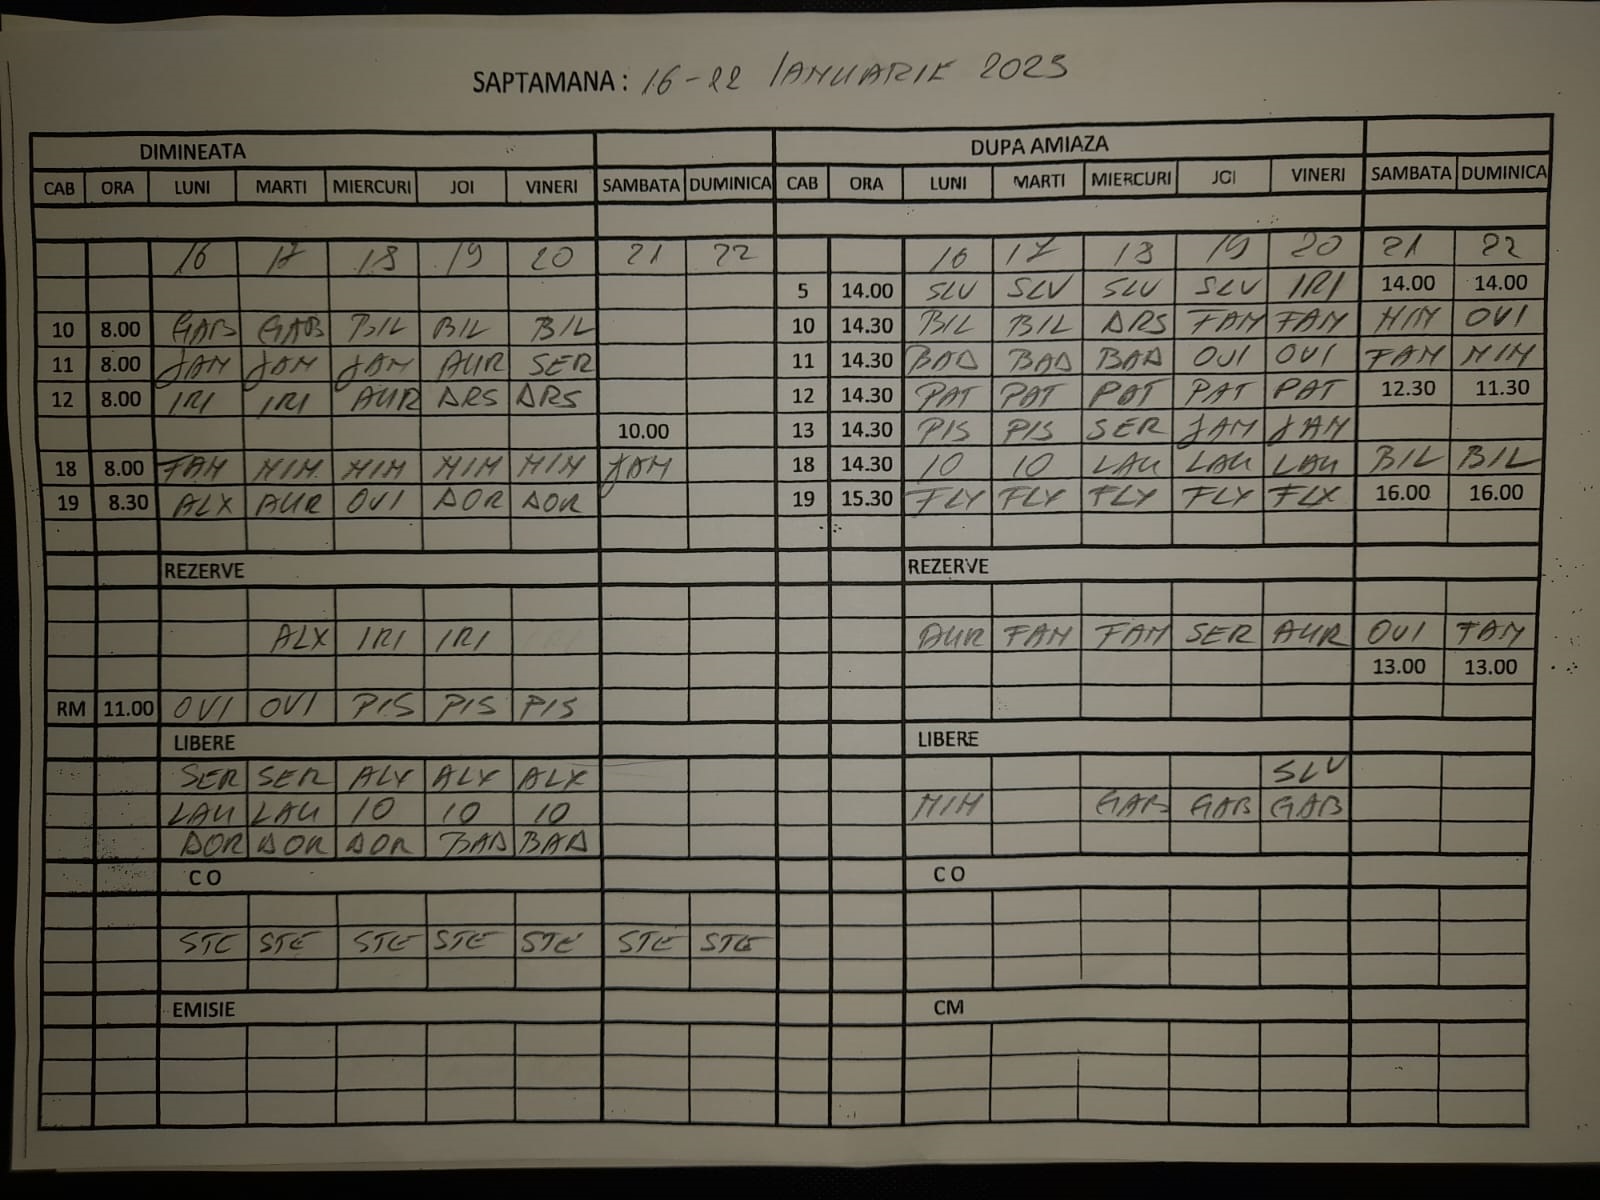 SAPTAMANA : 16-22 IANUARIE 2023
DIMINEATA DUPA AMIAZA
CAB ORA LUNI MARTI MIERCURI JOI VINERI SAMBATA DUMINICA CAB ORA LUNI MARTI MIERCURI JOI VINERI SAMBATA DUMINICA
16 17 18 19 20 21 22 16 17 18 19 20 21 22
5 14.00 SLV SLV SLV SLV IRI 14.00 14.00
10 8.00 GAB GAB BIL BIL BIL 10 14.30 BIL BIL DRS FAM FAM MIM OVI
11 8.00 JAM JAM JAM AUR SER 11 14.30 BAD BAD BAD OVI OVI FAM MIM
12 8.00 IRI IRI AUR DRS DRS 12 14.30 PAT PAT PAT PAT PAT 12.30 11.30
10.00 13 14.30 PIS PIS SER JAM JAM
18 8.00 FAM MIM MIM MIM MIM JAM 18 14.30 IO IO LAU LAU LAU BIL BIL
19 8.30 ALX AUR OVI DOR DOR 19 15.30 FLY FLY FLY FLY FLX 16.00 16.00
REZERVE REZERVE
ALX IRI IRI AUR FAM FAM SER AUR OVI FAM
13.00 13.00
RM 11.00 OVI OVI PIS PIS PIS
LIBERE LIBERE
SER SER ALX ALX ALX SLV
LAU LAU IO IO IO MIM GAB GAB GAB
DOR DOR DOR BAD BAD
C O C O
STE STE STE STE STE STE STE
EMISIE CM